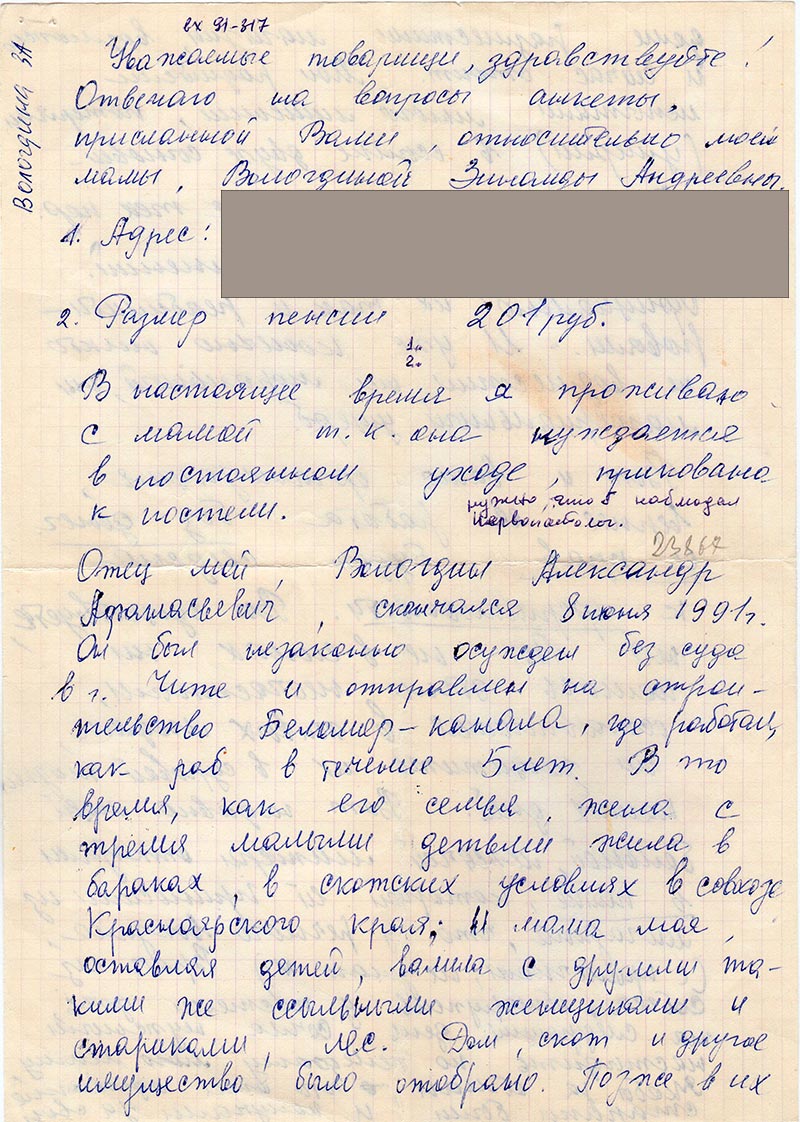 вх 91-317
Вологдина ЗА
Уважаемые товарищи, здравствуйте!
Отвечаю на вопросы анкеты,
присланной Вами, относительно моей
мамы, Вологдиной Зинаиды Андреевны.
1. Адрес:
2. Размер пенсии 201 руб.
1.
2.
В настоящее время я проживаю
с мамой т.к. она нуждается
в постоянном уходе, прикована
к постели.
нужно, чтоб наблюдал
23867
Отец мой, Вологдин Александр
Афанасьевич, скончался 8 июня 1991г.
Он был незаконно осужден без суда
в г. Чите и отправлен на строи-
тельство Беломор-канала, где работал,
как раб в течение 5 лет. В то
время, как его семья, жила с
тремя малыми детьми жила в
бараках, в скотских условиях в совхозе
Красноярского края; и мама моя,
оставляя детей, валила с другими та-
кими же ссыльными женщинами и
стариками, лес. Дом, скот и другое
имущество было отобрано. Позже в их